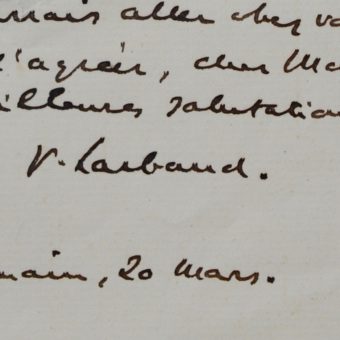 rrais aller chez vo
l'agréer, cher Mo
illeures salutation
V. Larbaud.
main, 20 Mars.